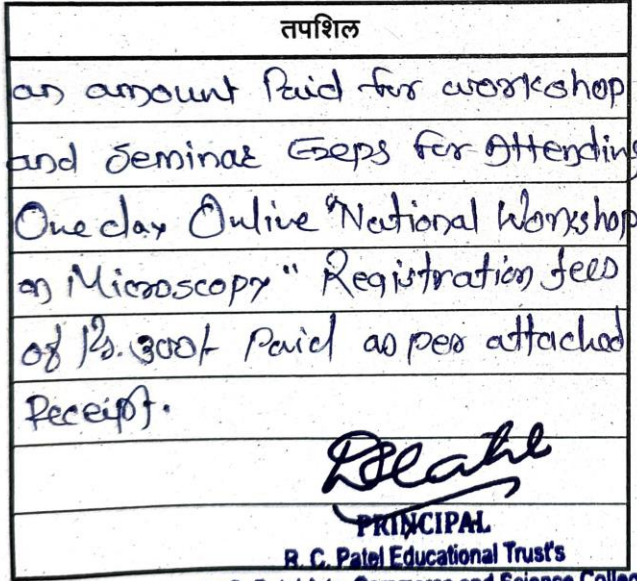 तपशिल
an amount Paid for workshop
and Seminar Exeps for Attending
One day Online "National Workshop
on Microscopy" Registration fees
of Rs. 300/- Paid as per attached
Receipt.
PRINCIPAL
R. C. Patel Educational Trust's
Commerce and Science College